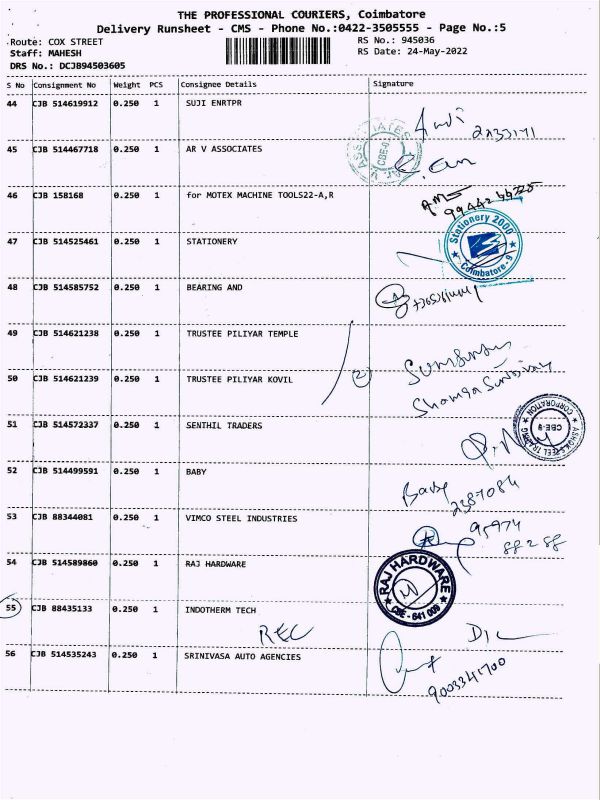 THE PROFESSIONAL COURIERS, Coimbatore
Delivery Runsheet - CMS - Phone No.:0422-3505555 - Page No.:5
Route: COX STREET
RS No.: 945036
Staff: MAHESH
RS Date: 24-May-2022
DRS No.: DCJB94503605
S No Consignment No Weight PCS Consignee Details Signature
44 CJB 514619912 0.250 1 SUJI ENRTPR
2233171
45 CJB 514467718 0.250 1 AR V ASSOCIATES
AR V ASSOCIATES CBE-0
46 CJB 158168 0.250 1 for MOTEX MACHINE TOOLS22-A,R
47 CJB 514525461 0.250 1 STATIONERY
Stationery 2000 Coimbatore - 9
48 CJB 514585752 0.250 1 BEARING AND
49 CJB 514621238 0.250 1 TRUSTEE PILIYAR TEMPLE
50 CJB 514621239 0.250 1 TRUSTEE PILIYAR KOVIL
2
51 CJB 514572337 0.250 1 SENTHIL TRADERS
CORPORATION CBE-9
52 CJB 514499591 0.250 1 BABY
Baby
2387084
53 CJB 88344081 0.250 1 VIMCO STEEL INDUSTRIES
95974
88288
54 CJB 514589860 0.250 1 RAJ HARDWARE
RAJ HARDWARE CBE - 641 009
55 CJB 88435133 0.250 1 INDOTHERM TECH
REC
56 CJB 514535243 0.250 1 SRINIVASA AUTO AGENCIES
9003341700